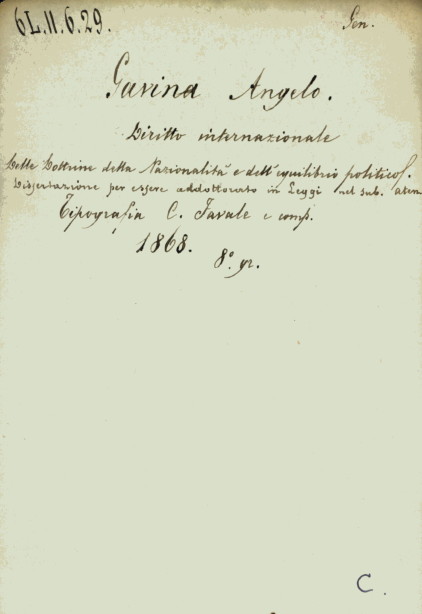 6L.II.6.29.
Gen.
Gavina Angelo.
Diritto internazionale
Delle Dottrine della Nazionalità e dell'equilibrio politico.
Dissertazione per essere addottorato in Leggi nel sub. aten.
Tipografia C. Favale e comp.
1868.
8º. gr.
C.